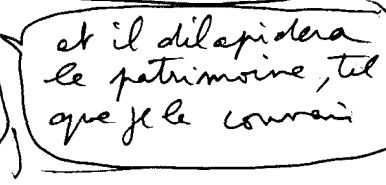 et il dilapidera
le patrimoine, tel
que je le connais